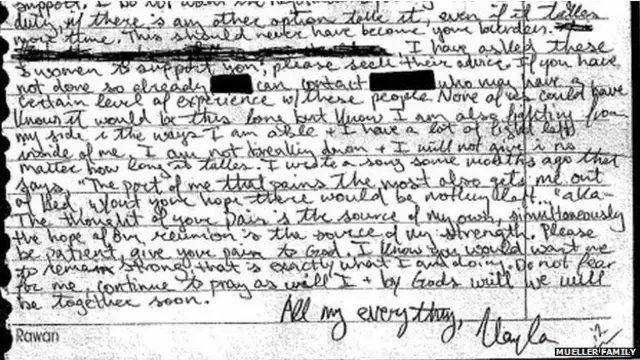 support. I do not want
duty, if there is am other option take it, even if it takes
more time. This should never have become your burden.
I have asked these
women to support you; please seek their advice. If you have
not done so already can contact who may have a
certain level of experience w/ these people. None of us could have
known it would be this long but know I am also fighting from
my side in the ways I am able + I have a lot of fight left
inside of me. I am not breaking down + I will not give in no
matter how long it takes. I wrote a song some months ago that
says, "The part of me that pains the most also gets me out
of bed, w/out your hope there would be nothing left..." aka-
The thought of your pain is the source of my own, simultaneously
the hope of our reunion is the source of my strength. Please
be patient, give your pain to God. I know you would want me
to remain strong that is exactly what I am doing. Do not fear
for me, continue to pray as will I + by Gods will we will
be together soon.
All my everything,
Kayla
Rawan
MUELLER FAMILY